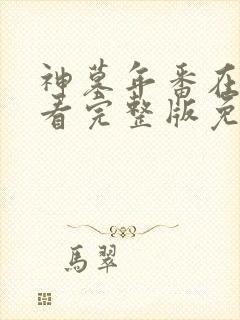 神墓年番在
看完整版免
馬翠